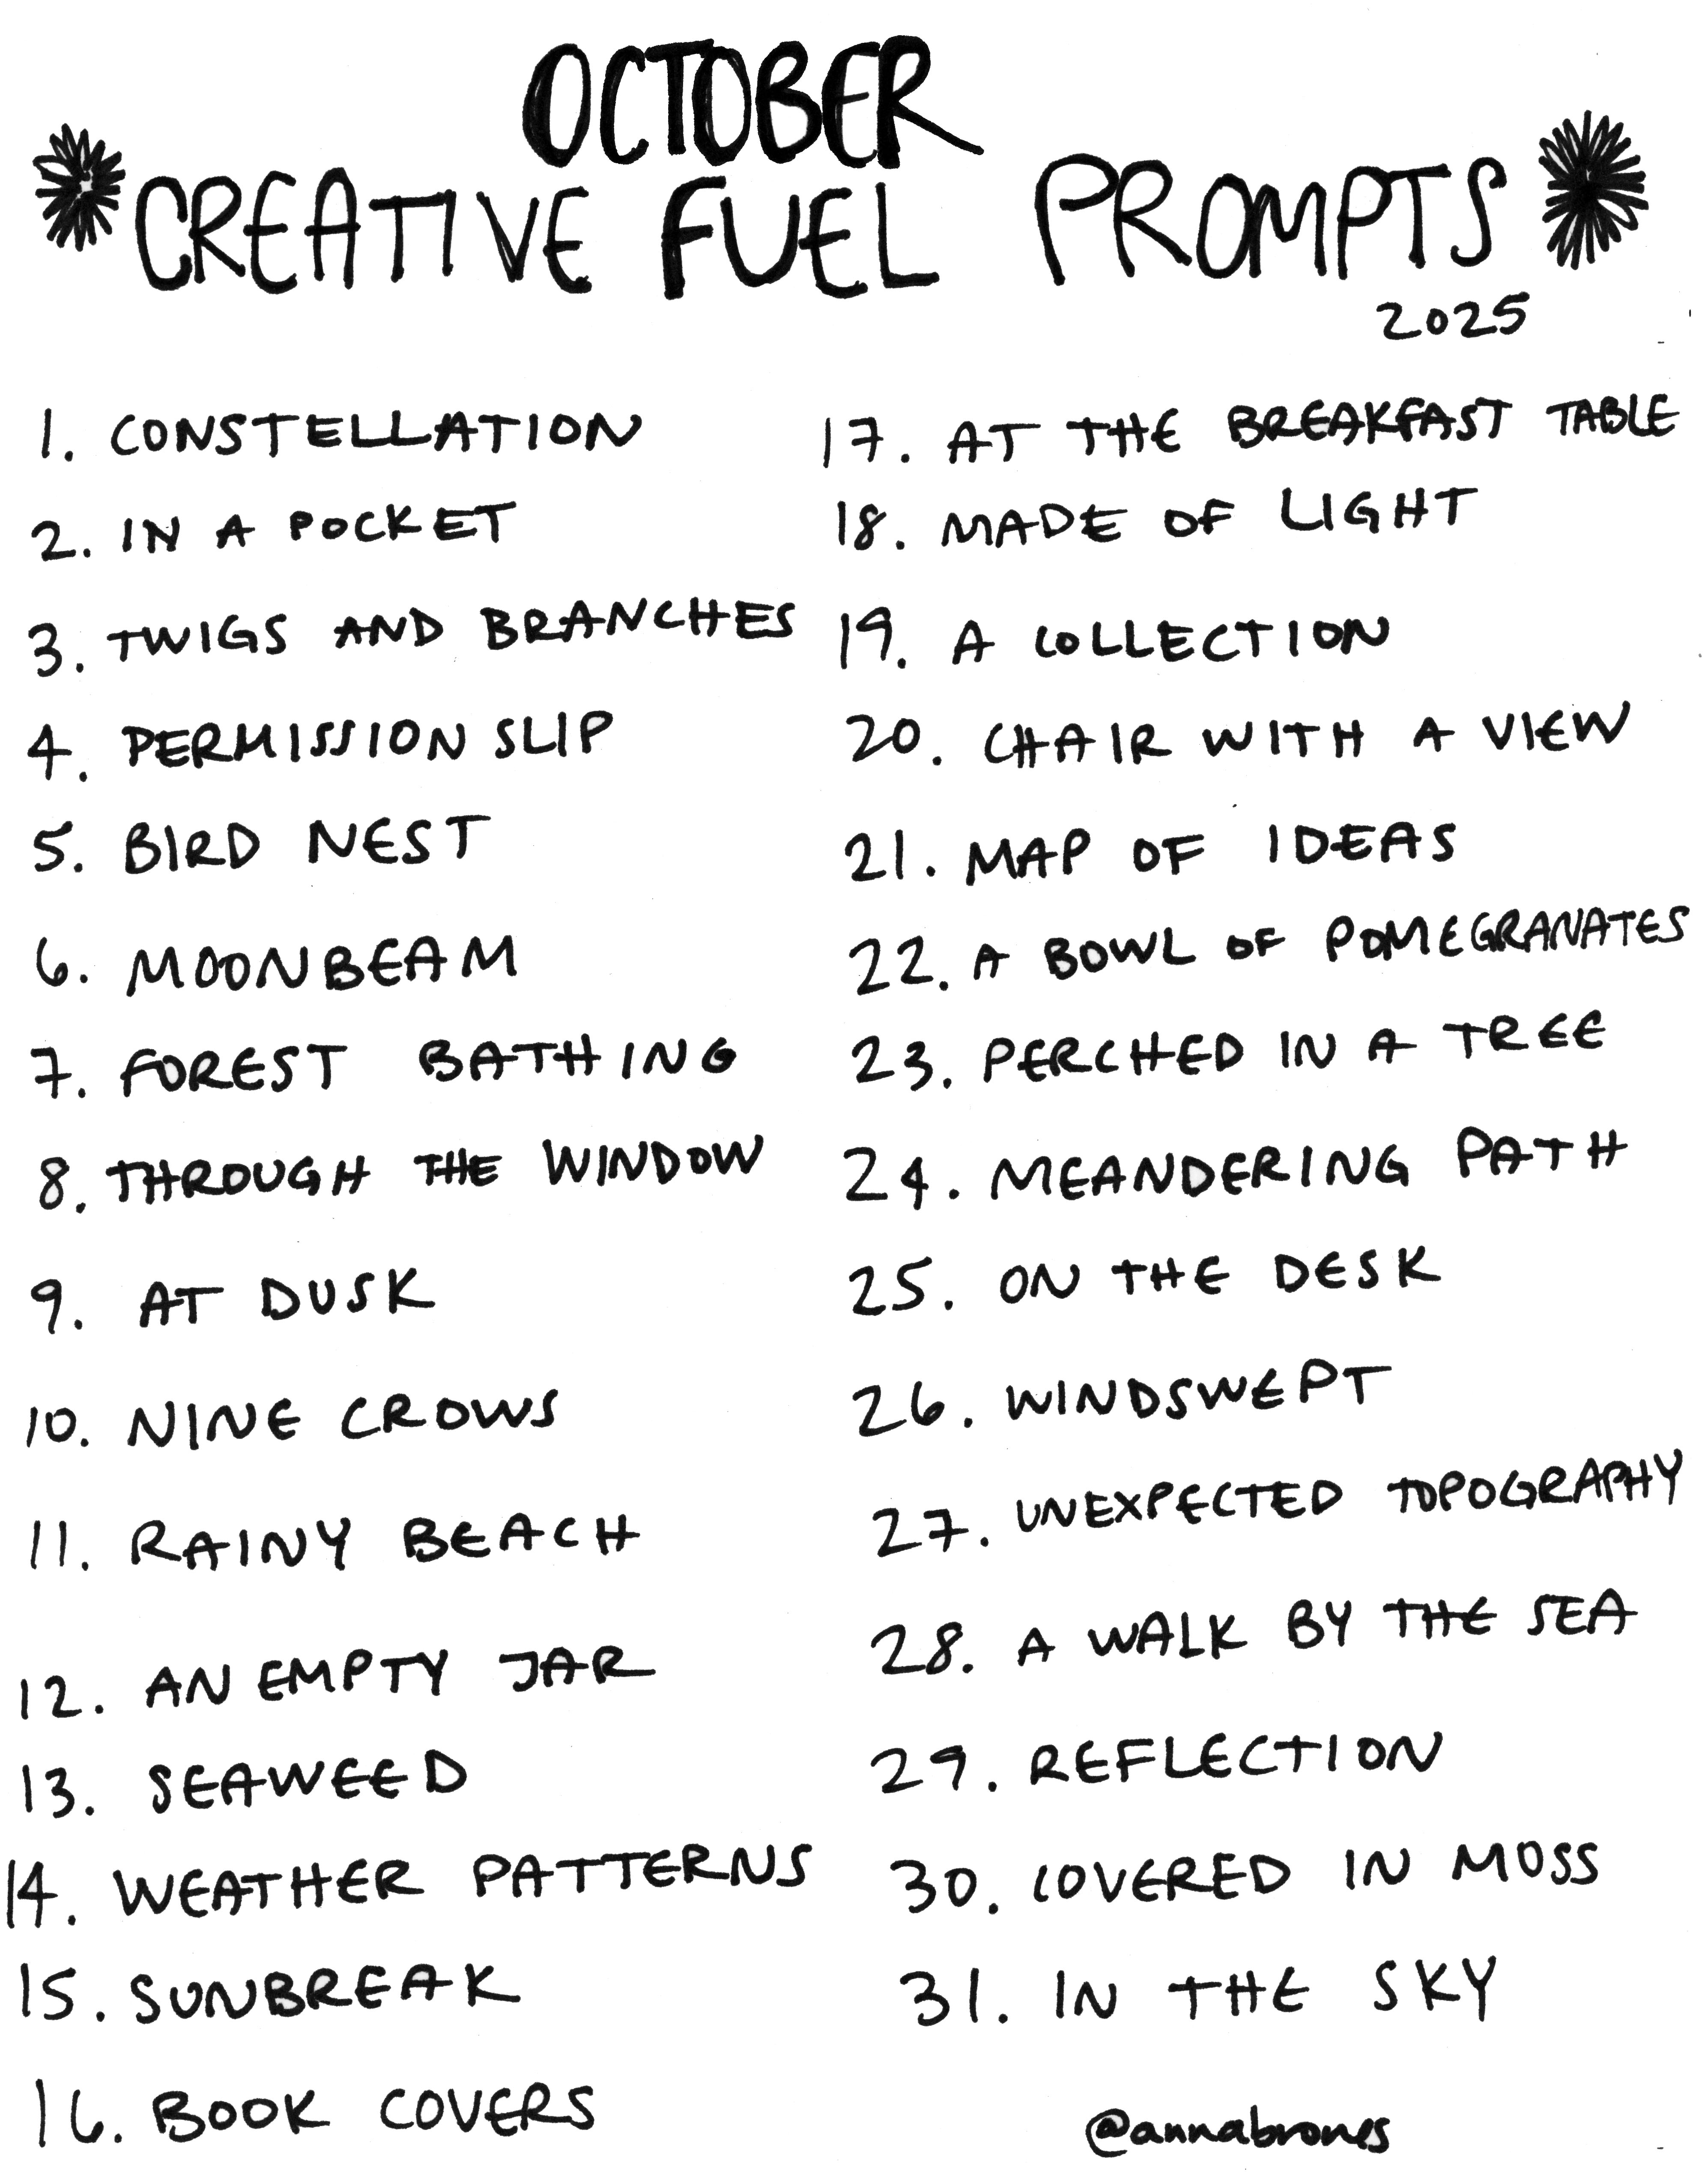 OCTOBER
CREATIVE FUEL PROMPTS
2025
1. CONSTELLATION
2. IN A POCKET
3. TWIGS AND BRANCHES
4. PERMISSION SLIP
5. BIRD NEST
6. MOONBEAM
7. FOREST BATHING
8. THROUGH THE WINDOW
9. AT DUSK
10. NINE CROWS
11. RAINY BEACH
12. AN EMPTY JAR
13. SEAWEED
14. WEATHER PATTERNS
15. SUNBREAK
16. BOOK COVERS
17. AT THE BREAKFAST TABLE
18. MADE OF LIGHT
19. A COLLECTION
20. CHAIR WITH A VIEW
21. MAP OF IDEAS
22. A BOWL OF POMEGRANATES
23. PERCHED IN A TREE
24. MEANDERING PATH
25. ON THE DESK
26. WINDSWEPT
27. UNEXPECTED TOPOGRAPHY
28. A WALK BY THE SEA
29. REFLECTION
30. COVERED IN MOSS
31. IN THE SKY
@annabrones